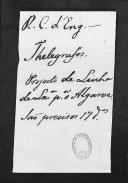 R. C. d'Eng.
Thelegrafos.
Projecto de Linha
de Lxª pª o Algarve
São precisos 17